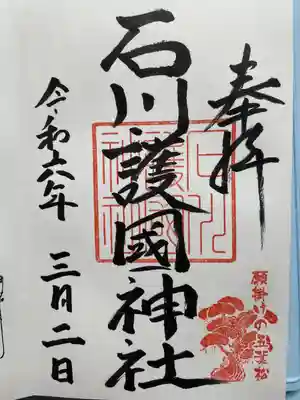 奉拝
石川護國神社
願掛けの五葉松
令和六年 三月二日